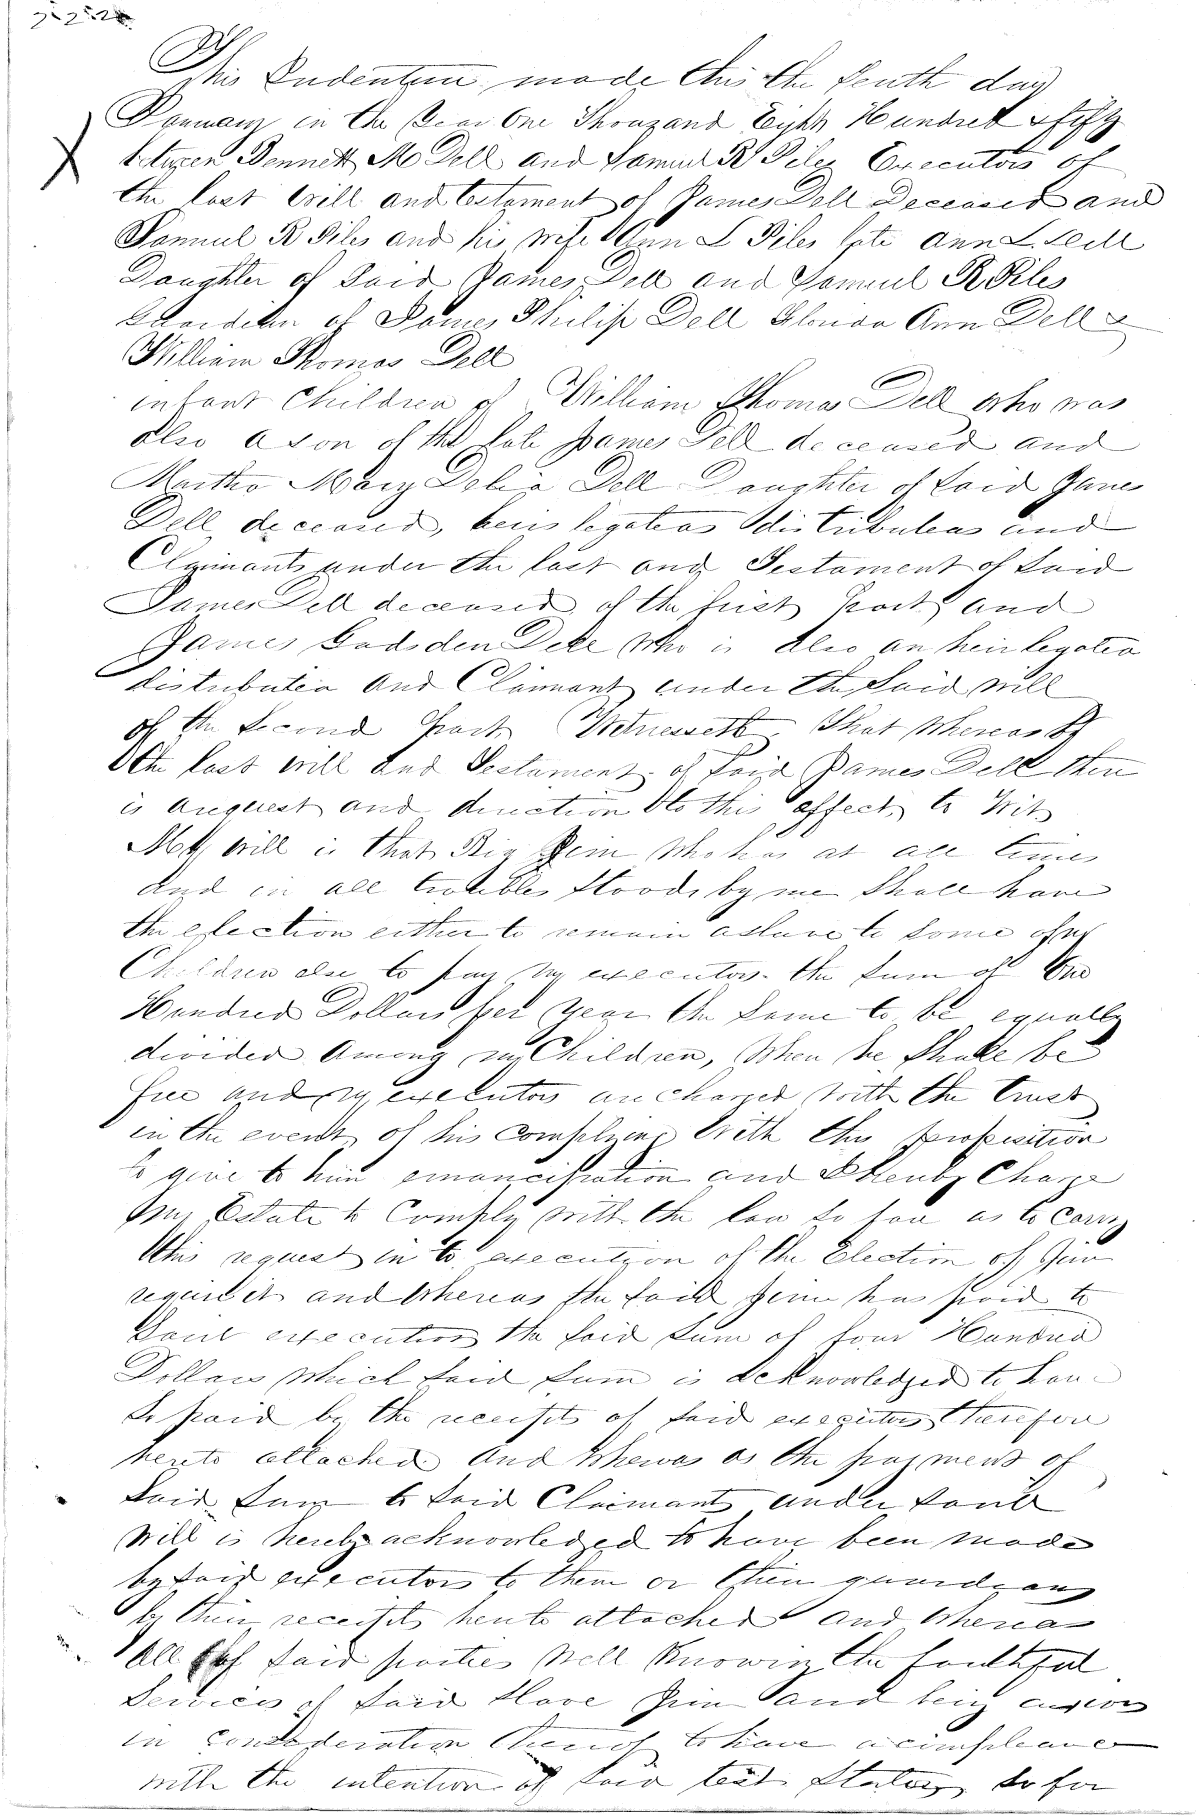 This Indenture made this the tenth day
January in the Year One Thouzand Eight Hundred & fifty
between Bennett M Dell and Samuel R Piles Executors of
the last Will and testament of James Dell Deceased and
Samuel R Piles and his wife Ann L Piles late Ann L Dell
Daughter of Said James Dell and Samuel R Piles
Guardian of James Philip Dell Ann Dell &
William Thomas Dell
infant Children of William Thomas Dell who was
also a son of the late James Dell deceased and
Martha Mary Delia Dell Daughter of Said James
Dell deceased, heirs legatees distributees and
Claimants under the last and Testament of Said
James Dell deceased of the first part and
James Gadsden Dell who is also an heir legatee
distributee and Claimant under the Said will
of the Second part Witnesseth. That whereas by
the last will and Testament of Said James Dell there
is a request and direction to this effect, to Wit
My will is that Big Jim who has at all times
and in all troubles stood by me Shall have
the election either to remain a slave to some of my
Children else to pay my executors the sum of One
Hundred Dollars per year the same to be equally
divided among my Children, When he Shall be
free and my executors are charged with the trust
in the event of his complying with this proposition
to give to him emancipation and I hereby Charge
my Estate to Comply with the law so far as to carry
this request in to execution if the Election of Jim
require it and whereas the said Jim has paid to
Said executors the said sum of four Hundred
Dollars which said sum is acknowledged to have
So paid by the receipts of said executors therefore
hereto attached and whereas as the payment of
Said Sum to Said Claimants under said
will is hereby acknowledged to have been made
by said executors to them or their guardians
by their receipts hereto attached and whereas
all of said parties well Knowing the faithful
Services of Said Slave Jim and being anxious
in consideration thereof to have a compleance
with the intention of Said so far